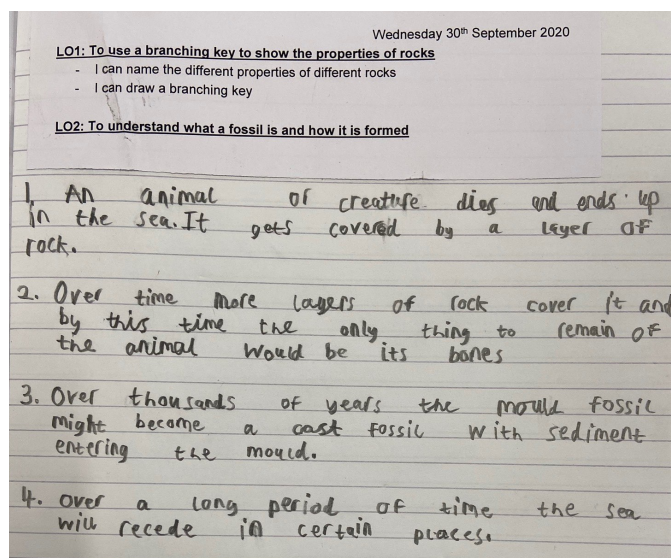 Wednesday 30th September 2020
LO1: To use a branching key to show the properties of rocks
- I can name the different properties of different rocks
- I can draw a branching key
LO2: To understand what a fossil is and how it is formed
1. An animal or creature dies and ends up
in the sea. It gets covered by a layer of
rock.
2. Over time more layers of rock cover it and
by this time the only thing to remain of
the animal would be its bones
3. Over thousands of years the mould fossil
might become a cast fossil with sediment
entering the mould.
4. over a long period of time the sea
will recede in certain places.